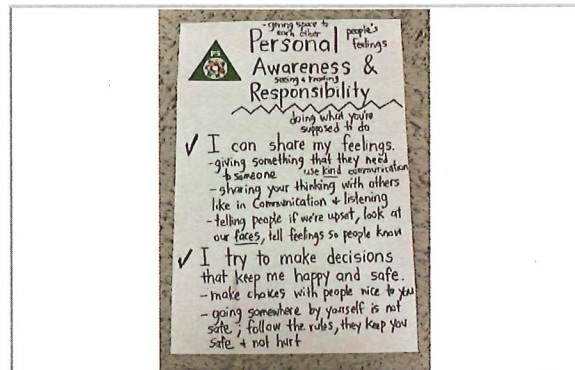 - giving space to
each other
people's
feelings
PS
Personal
Awareness &
seeing & knowing
Responsibility
doing what you're
supposed to do
✓ I can share my feelings.
- giving something that they need
to someone use kind communication
- sharing your thinking with others
like in Communication & listening
- telling people if we're upset, look at
our faces, tell feelings so people know
✓ I try to make decisions
that keep me happy and safe.
- make choices with people nice to you
- going somewhere by yourself is not
safe; follow the rules, they keep you
safe & not hurt